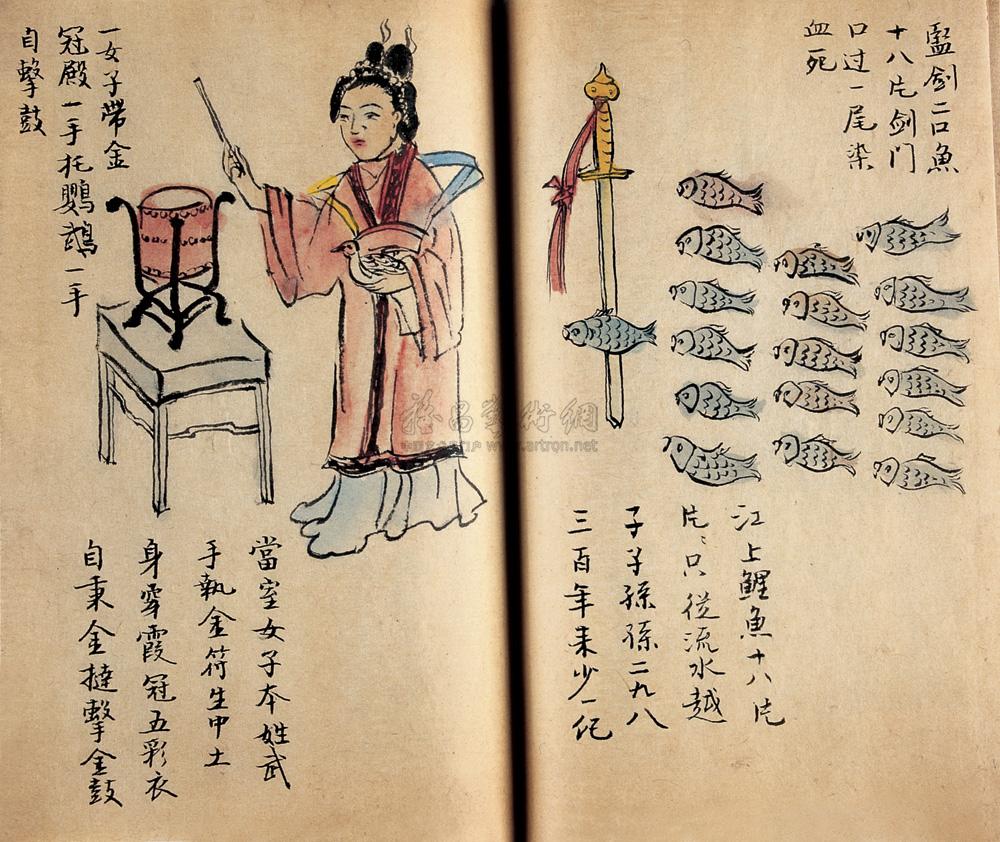 盈剑二口魚
十八片剑门
口过一尾染
血死
江上鯉魚十八片
片片只從流水越
子子孫孫二九八
三百年来少一佗
一女子帶金
冠殿一手托鸚鵡一手
自擊鼓
當室女子本姓武
手執金符生中土
身穿霞冠五彩衣
自秉金撻擊金鼓
www.artron.net